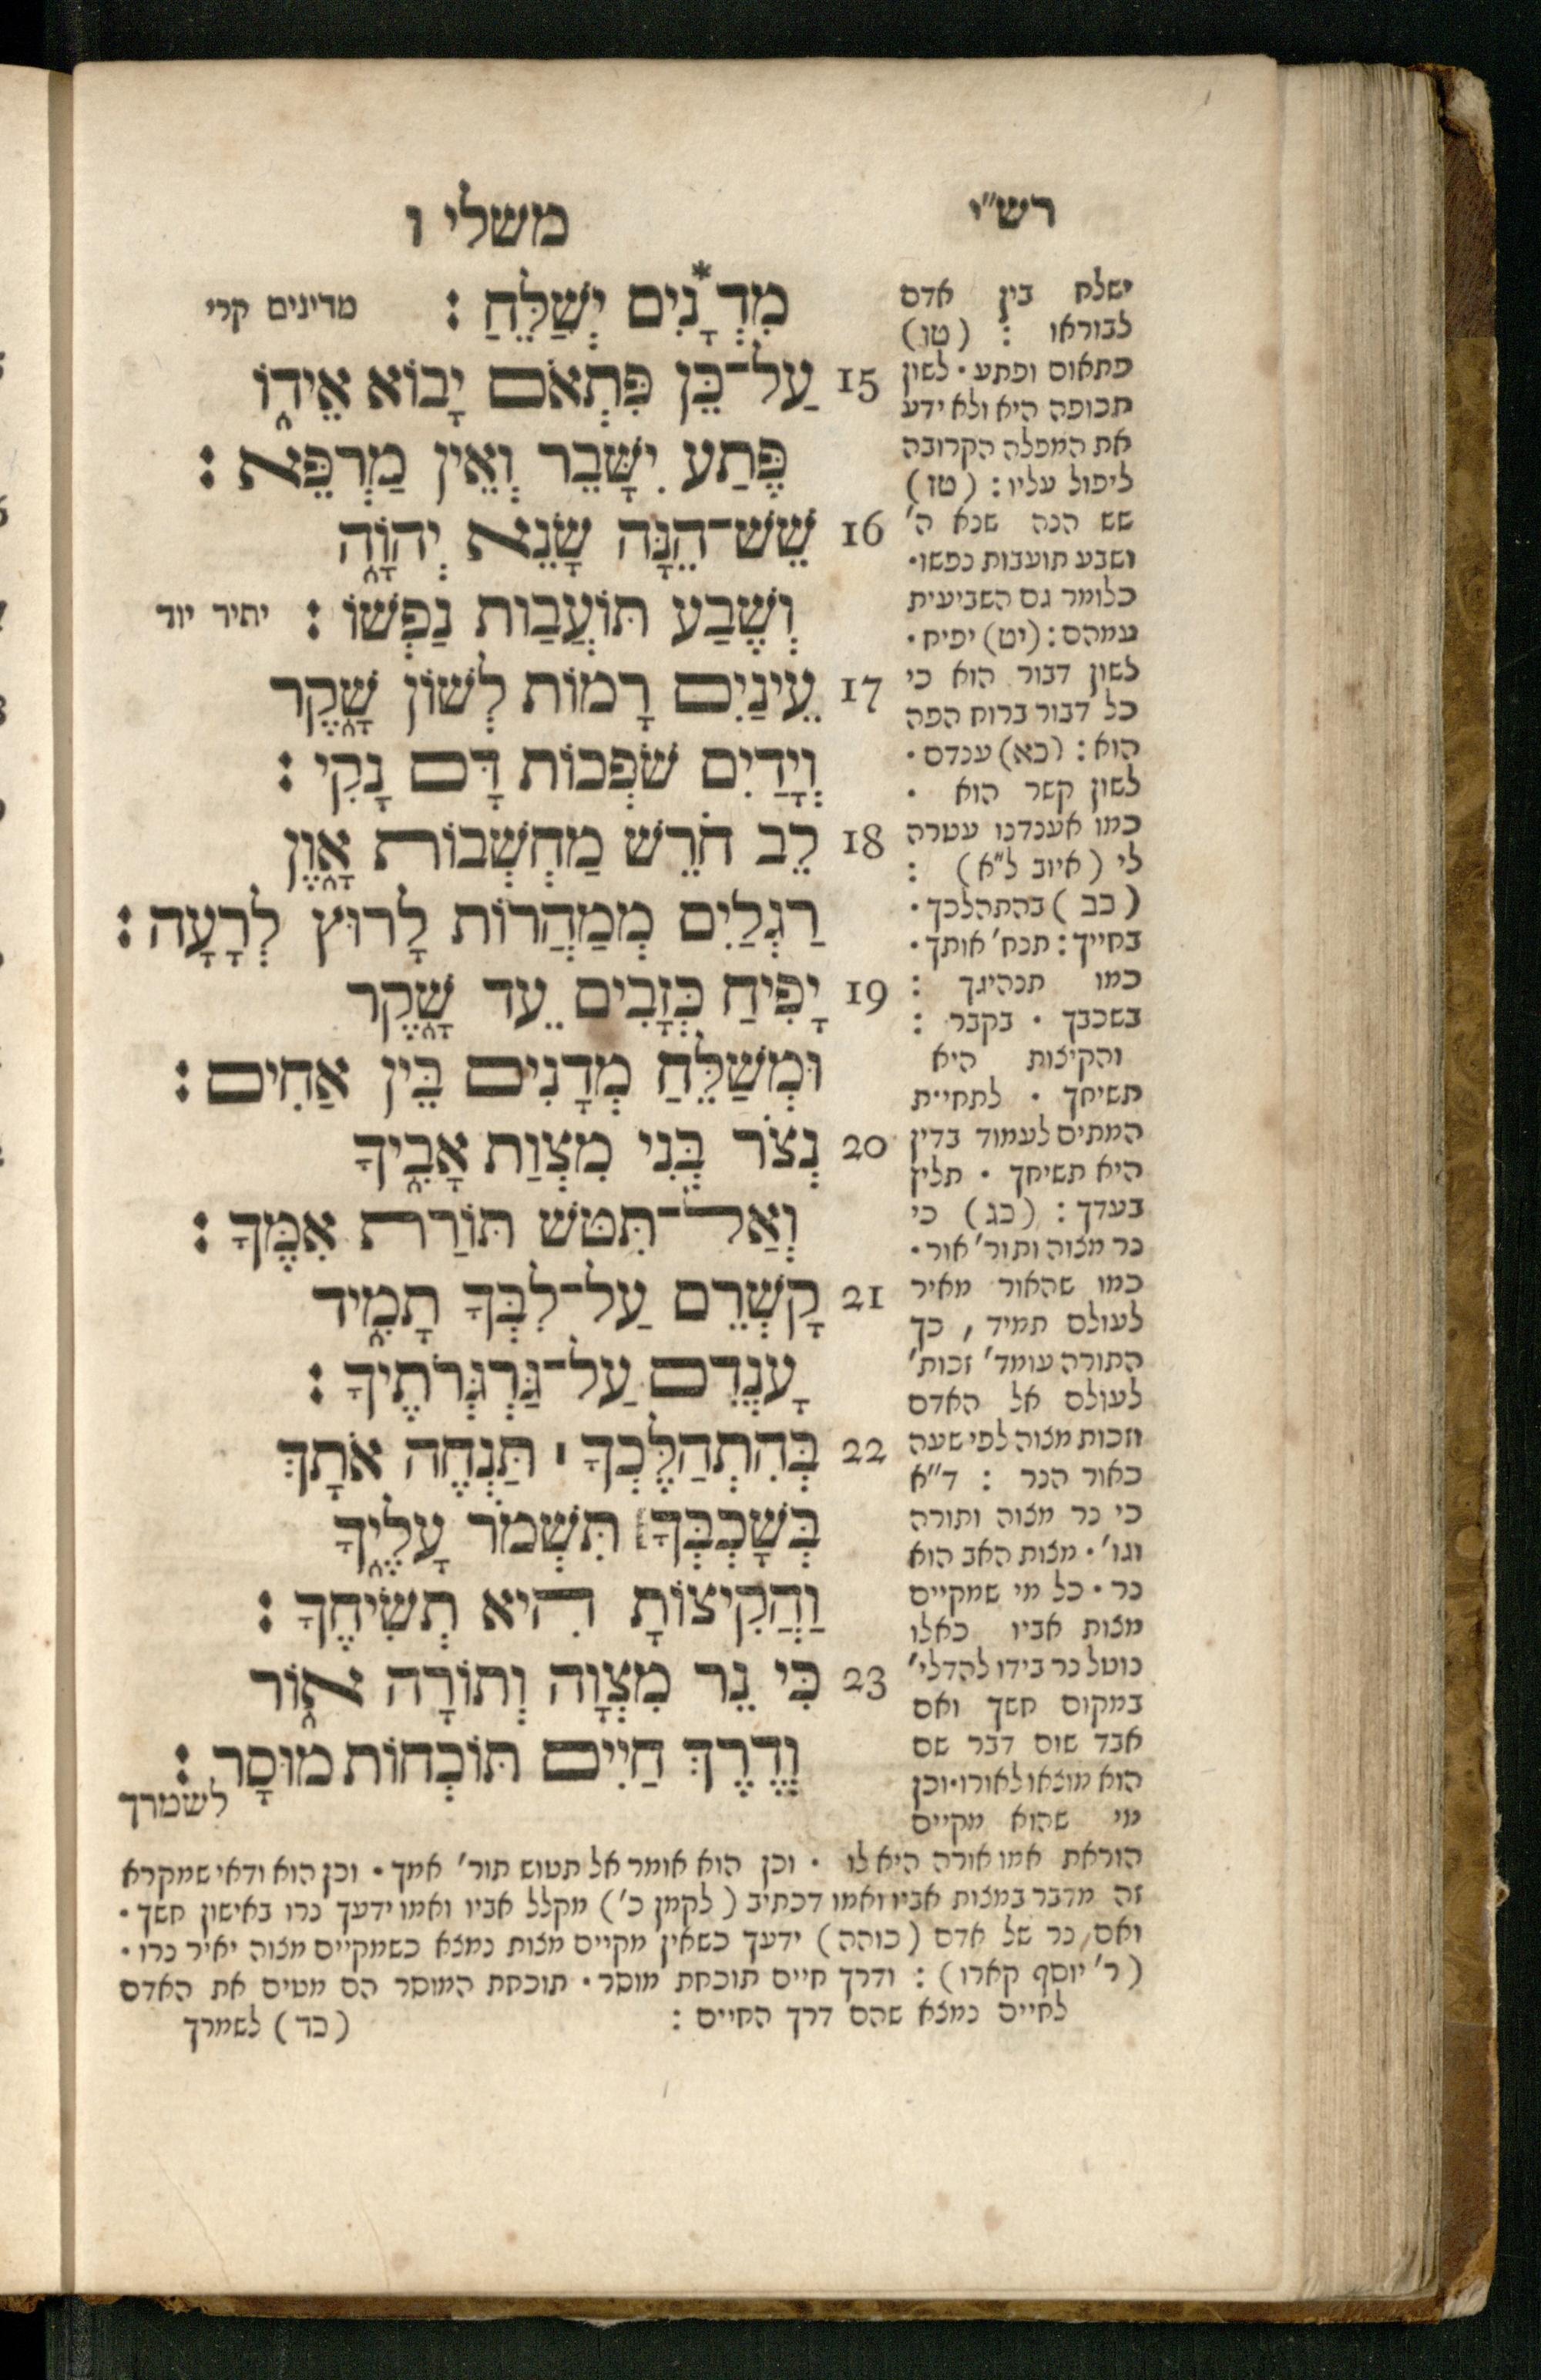 משלי ו
רש״י
מִדְ*נָיִם יְשַׁלֵּחַ :
מדינים קרי
15 עַל־כֵּן פִּתְאֹם יָבוֹא אֵיד֑וֹ
פֶּתַע יִשָּׁבֵר וְאֵין מַרְפֵּא :
16 שֶׁשׁ־הֵנָּה שָׂנֵא יְהוָ֑ה
וְשֶׁבַע תּוֹעֲבַות נַפְשׁוֹ :
יתיר יוד
17 עֵינַיִם רָמוֹת לְשׁוֹן שָׁ֑קֶר
וְיָדַיִם שֹׁפְכוֹת דָּם נָקִי :
18 לֵב חֹרֵשׁ מַחְשְׁבוֹת אָ֑וֶן
רַגְלַיִם מְמַהֲרוֹת לָרוּץ לְרָעָה :
19 יָפִיחַ כְּזָבִים עֵד שָׁ֑קֶר
וּמְשַׁלֵּחַ מְדָנִים בֵּין אַחִים :
20 נְצֹר בְּנִי מִצְוַת אָבִ֑יךָ
וְאַל־תִּטֹּשׁ תּוֹרַת אִמֶּךָ :
21 קָשְׁרֵם עַל־לִבְּךָ תָמִ֑יד
עָנְדֵם עַל־גַּרְגְּרֹתֶיךָ :
22 בְּהִתְהַלֶּכְךָ ׀ תַּנְחֶה אֹתָךְ
בְּשָׁכְבְּךָ תִּשְׁמֹר עָלֶ֑יךָ
וַהֲקִיצוֹתָ הִיא תְשִׂיחֶךָ :
23 כִּי נֵר מִצְוָה וְתוֹרָה א֑וֹר
וְדֶרֶךְ חַיִּים תּוֹכְחוֹת מוּסָר :
לשמרך
ישלח בין אדם
לבוראו : (טו)
פתאום ופתע · לשון
תכופה היא ולא ידע
את המפלה הקרובה
ליפול עליו : (טז)
שש הנה שנא ה׳
ושבע תועבות נפשו ·
כלומר גם השביעית
עמהם : (יט) יפיח ·
לשון דבור הוא כי
כל דבור ברוח הפה
הוא : (כא) ענדם ·
לשון קשר הוא ·
כמו אענדנו עטרה
לי (איוב ל״א) :
(כב) בהתהלכך ·
בחייך : תנח׳ אותך ·
כמו תנהיגך :
בשכבך · בקבר :
והקיצות היא
תשיחך · לתחיית
המתים לעמוד בדין
היא תשיחך · תליץ
בעדך : (כג) כי
נר מצוה ותור׳ אור ·
כמו שהאור מאיר
לעולם תמיד , כך
התורה עומד׳ זכות׳
לעולם אל האדם
וזכות מצוה לפי שעה
כאור הנר : ד״א
כי נר מצוה ותורה
וגו׳ · מצות האב הוא
נר · כל מי שמקיים
מצות אביו כאלו
נוטל נר בידו להדלי׳
במקום חשך ואם
אבד שום דבר שם
הוא מוצאו לאורו · וכן
מי שהוא מקיים
הוראת אמו אורה היא לו · וכן הוא אומר אל תטוש תור׳ אמך · וכן הוא ודאי שמקרא
זה מדבר במצות אביו ואמו דכתיב (לקמן כ׳) מקלל אביו ואמו ידעך נרו באישון חשך ·
ואם נר של אדם (כוהה) ידעך כשאין מקיים מצות נמצא כשמקיים מצוה יאיר נרו ·
(ר׳ יוסף קארו) : ודרך חיים תוכחת מוסר · תוכחת המוסר הם מטים את האדם
לחיים נמצא שהם דרך החיים : (כד) לשמרך